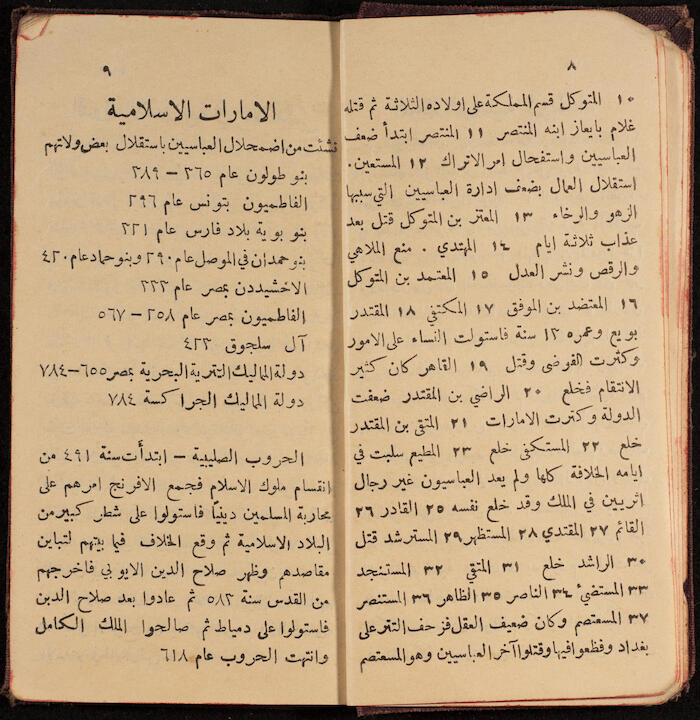 ٨
١٠ المتوكل قسم المملكة على اولاده الثلاثة ثم قتله
غلام بايعاز ابنه المنتصر ١١ المنتصر ابتدأ ضعف
العباسيين واستفحال امر الاتراك ١٢ المستعين.
استقلال العمال بضعف ادارة العباسيين التي سببها
الزهو والرخاء ١٣ المعتز بن المتوكل قتل بعد
عذاب ثلاثة ايام ١٤ المهتدي . منع الملاهي
والرقص ونشر العدل ١٥ المعتمد بن المتوكل
١٦ المعتضد بن الموفق ١٧ المكتفي ١٨ المقتدر
بويع وعمره ١٢ سنة فاستولت النساء على الامور
وكثرت الفوضى وقتل ١٩ القاهر كان كثير
الانتقام فخلع ٢٠ الراضي بن المقتدر ضعفت
الدولة وكثرت الامارات ٢١ المتقي بن المقتدر
خلع ٢٢ المستكفي خلع ٢٣ المطيع سلبت في
ايامه الخلافة كلها ولم يعد العباسيون غير رجال
اثريين في الملك وقد خلع نفسه ٢٥ القادر ٢٦
القائم ٢٧ المقتدي ٢٨ المستظهر ٢٩ المسترشد قتل
٣٠ الراشد خلع ٣١ المتقي ٣٢ المستنجد
٣٣ المستضيئ ٣٤ الناصر ٣٥ الظاهر ٣٦ المستنصر
٣٧ المستعصم وكان ضعيف العقل فزحف التتر على
بغداد وفظعوا فيها وقتلوا آخر العباسيين وهو المستعصم
٩
الامارات الاسلامية
فنشئت من اضمحلال العباسيين باستقلال بعض ولاتهم
بنو طولون عام ٢٦٥ – ٢٨٩
الفاطميون بتونس عام ٢٩٦
بنو بوية بلاد فارس عام ٢٢١
بنو حمدان في الموصل عام ٢٩٠ وبنو حماد عام ٤٢٠
الاخشيدن بمصر عام ٢٢٢
الفاطميون بمصر عام ٢٥٨ – ٥٦٧
آل سلجوق ٤٢٢
دولة المماليك التترية البحرية بمصر ٦٥٥–٧٨٤
دولة المماليك الجراكسة ٧٨٤
الحروب الصليبية – ابتدأت سنة ٤٩١ من
انقسام ملوك الاسلام فجمع الافرنج امرهم على
محاربة المسلمين دينيًا فاستولوا على شطر كبير من
البلاد الاسلامية ثم وقع الخلاف فيما بينهم لتباين
مقاصدهم وظهر صلاح الدين الايوبي فاخرجهم
من القدس سنة ٥٨٢ ثم عادوا بعد صلاح الدين
فاستولوا على دمياط ثم صالحوا الملك الكامل
وانتهت الحروب عام ٦١٨